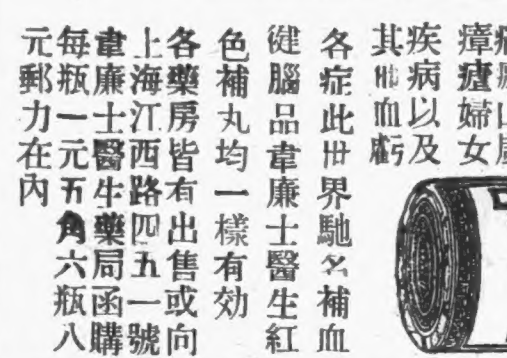 瘴瘧婦女
疾病以及
其他血虧
各症此世界馳名補血
健腦品韋廉士醫生紅
色補丸均一樣有効
各藥房皆有出售或向
上海江西路四五一號
韋廉士醫生藥局函購
每瓶一元五角六瓶八
元郵力在內